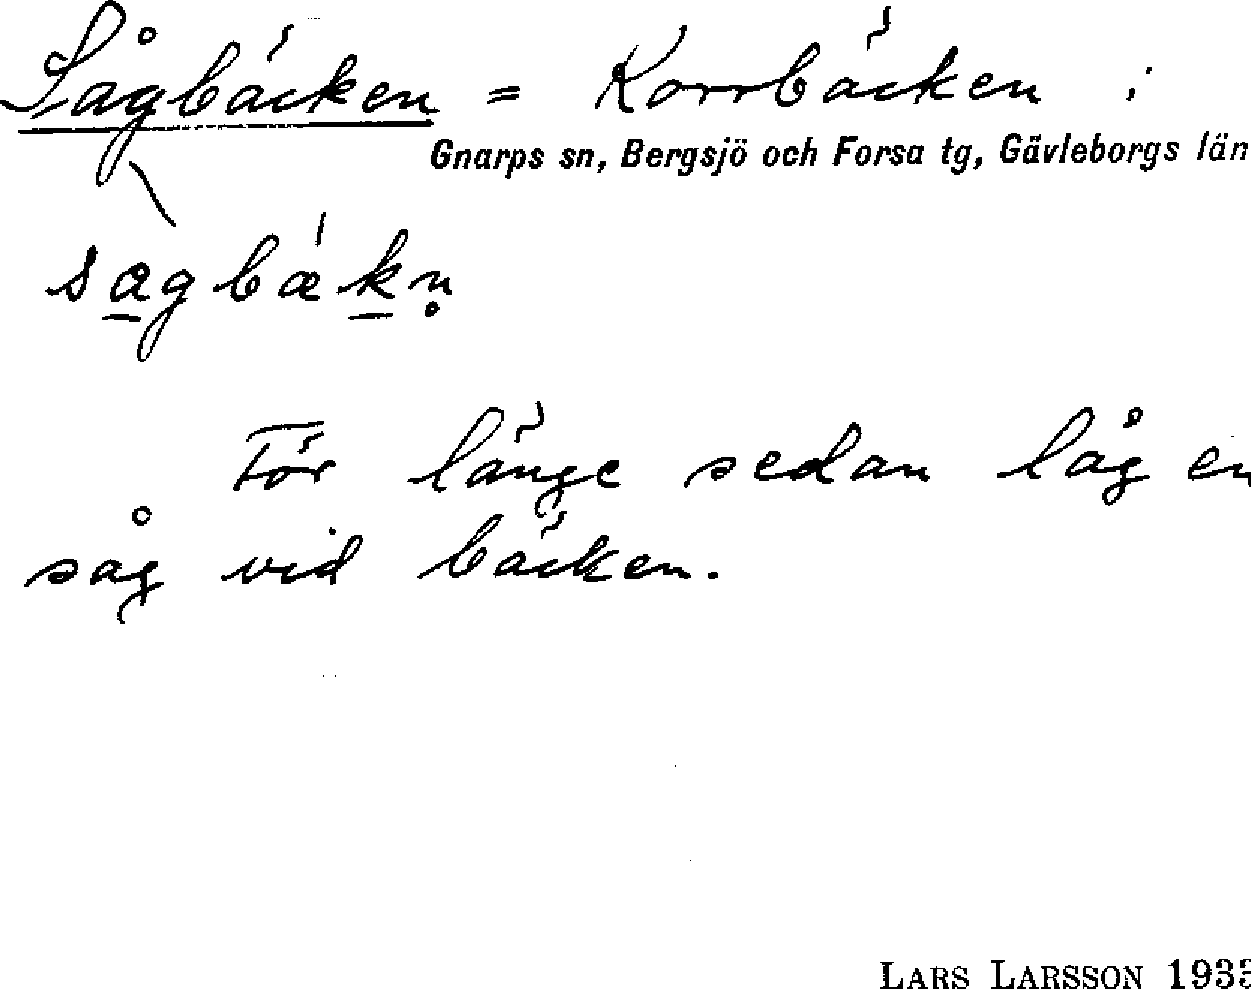 Sågbäcken = Korrbäcken i
Gnarps sn, Bergsjö och Forsa tg, Gävleborgs län
sagbækn̥
För länge sedan låg en
såg vid bäcken.
LARS LARSSON 193